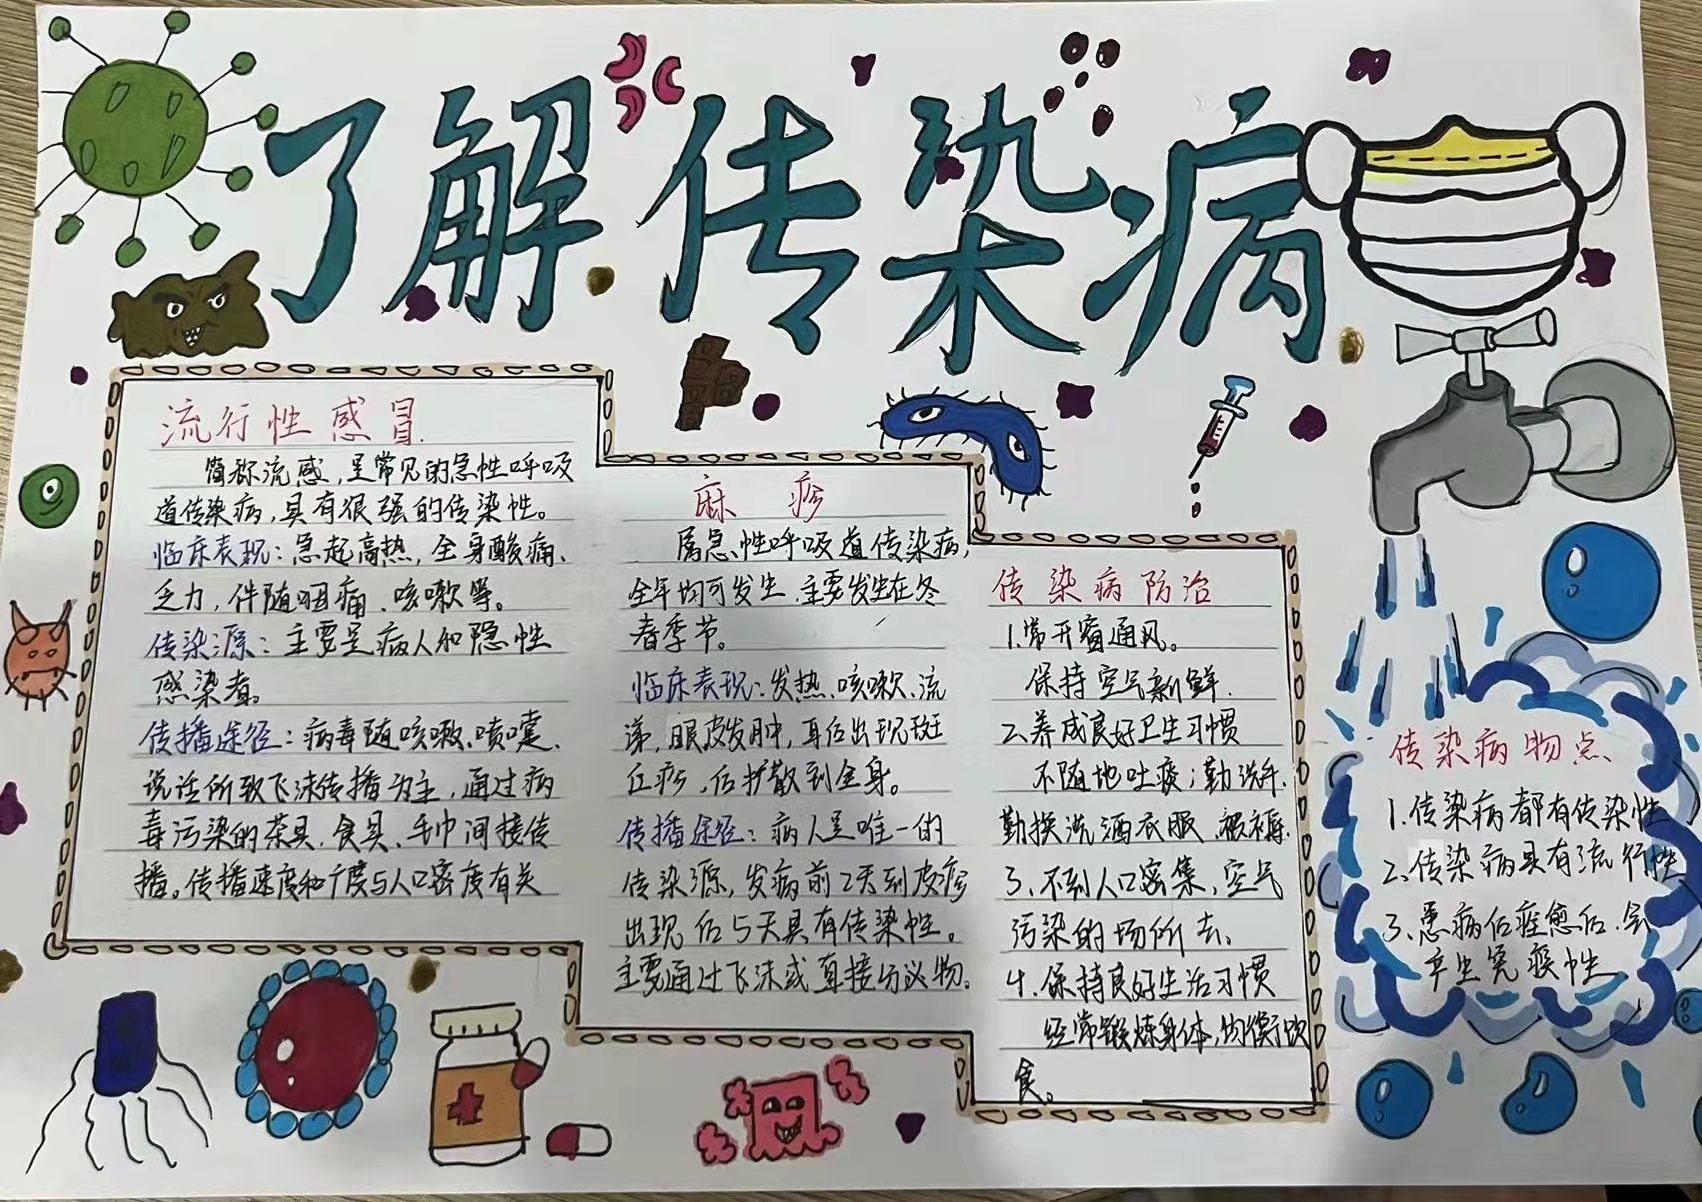 了解传染病
流行性感冒
简称流感,是常见的急性呼吸
道传染病,具有很强的传染性。
临床表现:急起高热,全身酸痛、
乏力,伴随咽痛、咳嗽等。
传染源:主要是病人和隐性
感染者。
传播途径:病毒随咳嗽、喷嚏、
说话所致飞沫传播为主,通过病
毒污染的茶具、食具、毛巾间接传
播。传播速度和广度与人口密度有关
麻疹
属急性呼吸道传染病,
全年均可发生、主要发生在冬
春季节。
临床表现:发热、咳嗽、流
涕,眼皮发肿,耳后出现斑
丘疹,后扩散到全身。
传播途径:病人是唯一的
传染源,发病前2天到皮疹
出现后5天具有传染性。
主要通过飞沫或直接分泌物。
传染病防治
1.常开窗通风。
保持空气新鲜.
2.养成良好卫生习惯
不随地吐痰;勤洗手.
勤换洗洒衣服、被褥.
3、不到人口密集,空气
污染的场所去、
4.保持良好生活习惯
经常锻炼身体,均衡饮
食。
传染病物点、
1.传染病都有传染性
2.传染病具有流行性
3、患病后痊愈后.会
产生免疫性